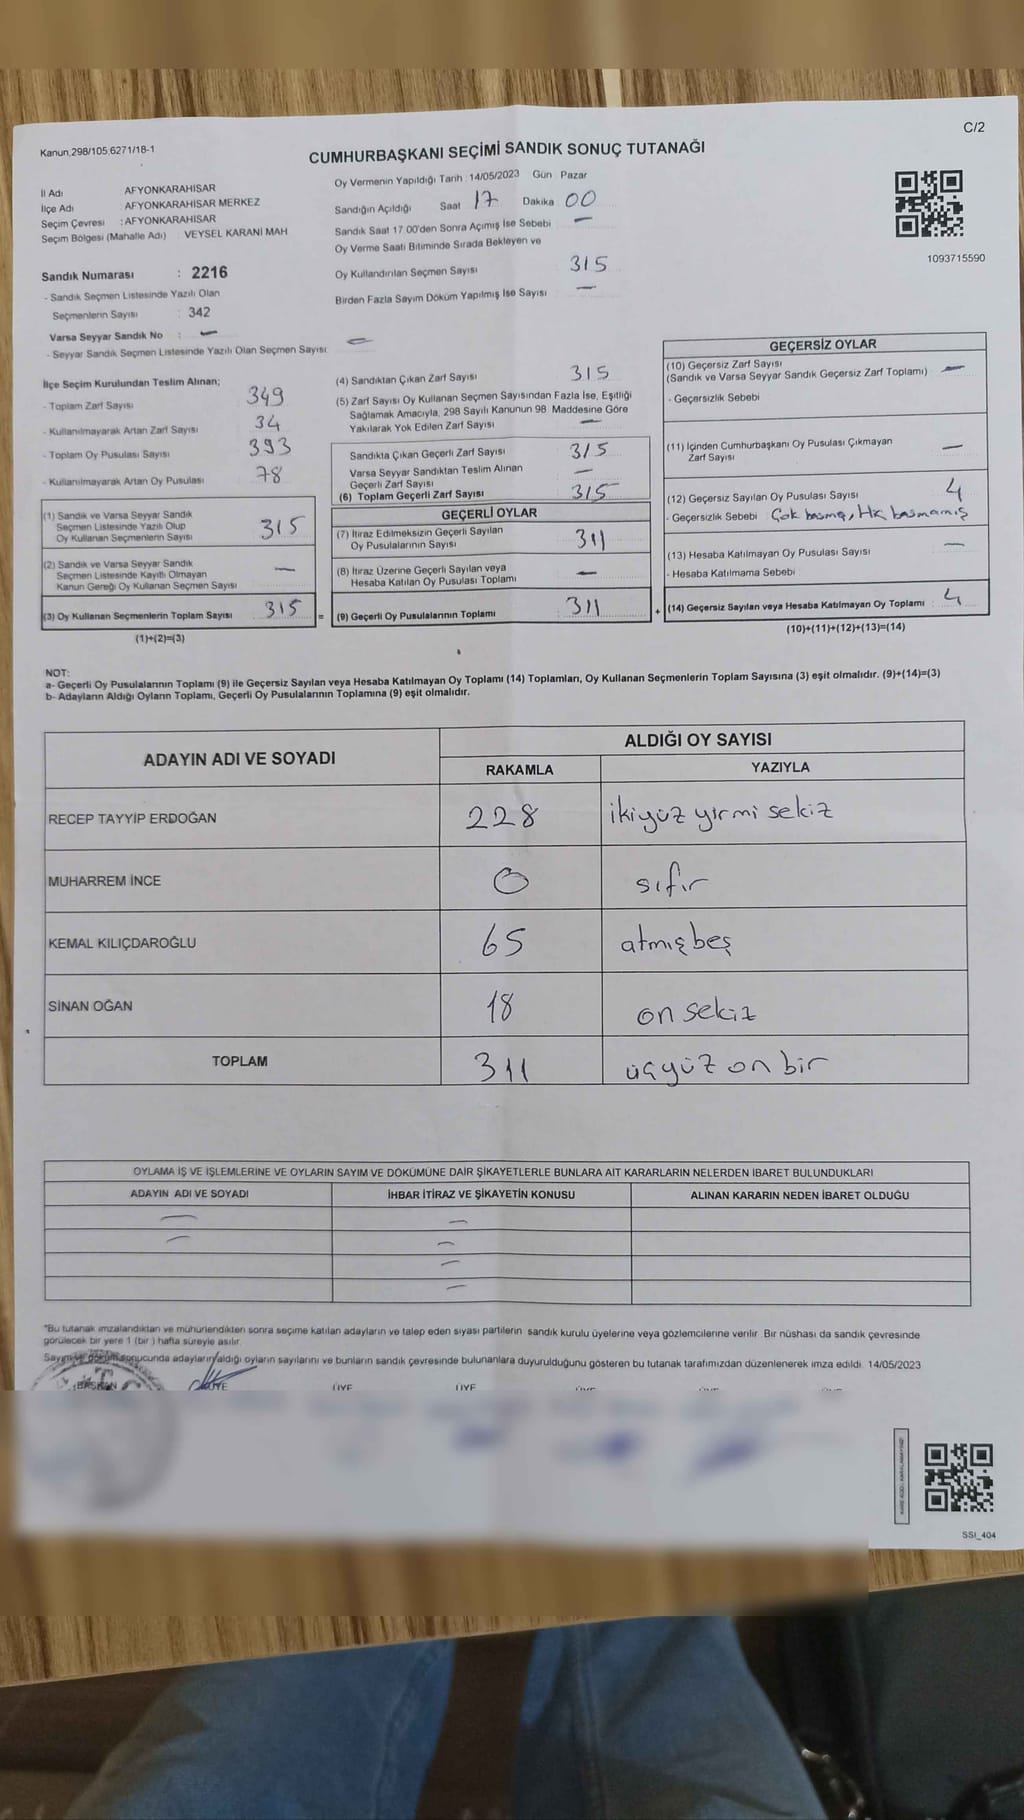 C/2
Kanun,298/105,6271/18-1
CUMHURBAŞKANI SEÇİMİ SANDIK SONUÇ TUTANAĞI
İl Adı AFYONKARAHİSAR
İlçe Adı : AFYONKARAHİSAR MERKEZ
Seçim Çevresi : AFYONKARAHİSAR
Seçim Bölgesi (Mahalle Adı) : VEYSEL KARANİ MAH
Sandık Numarası : 2216
- Sandık Seçmen Listesinde Yazılı Olan
Seçmenlerin Sayısı : 342
Varsa Seyyar Sandık No : —
- Seyyar Sandık Seçmen Listesinde Yazılı Olan Seçmen Sayısı: —
Oy Vermenin Yapıldığı Tarih : 14/05/2023 Gün Pazar
Sandığın Açıldığı Saat 17 Dakika 00
Sandık Saat 17.00'den Sonra Açımış İse Sebebi —
Oy Verme Saati Bitiminde Sırada Bekleyen ve
Oy Kullandırılan Seçmen Sayısı 315
Birden Fazla Sayım Döküm Yapılmış İse Sayısı —
1093715590
İlçe Seçim Kurulundan Teslim Alınan;
- Toplam Zarf Sayısı 349
- Kullanılmayarak Artan Zarf Sayısı 34
- Toplam Oy Pusulası Sayısı 393
- Kullanılmayarak Artan Oy Pusulası 78
(1) Sandık ve Varsa Seyyar Sandık
Seçmen Listesinde Yazılı Olup
Oy Kullanan Seçmenlerin Sayısı 315
(2) Sandık ve Varsa Seyyar Sandık
Seçmen Listesinde Kayıtlı Olmayan
Kanun Gereği Oy Kullanan Seçmen Sayısı —
(3) Oy Kullanan Seçmenlerin Toplam Sayısı 315 =
(1)+(2)=(3)
(4) Sandıktan Çıkan Zarf Sayısı 315
(5) Zarf Sayısı Oy Kullanan Seçmen Sayısından Fazla İse, Eşitliği
Sağlamak Amacıyla, 298 Sayılı Kanunun 98. Maddesine Göre
Yakılarak Yok Edilen Zarf Sayısı —
Sandıkta Çıkan Geçerli Zarf Sayısı 315
Varsa Seyyar Sandıktan Teslim Alınan
Geçerli Zarf Sayısı —
(6) Toplam Geçerli Zarf Sayısı 315
GEÇERLİ OYLAR
(7) İtiraz Edilmeksizin Geçerli Sayılan
Oy Pusulalarının Sayısı 311
(8) İtiraz Üzerine Geçerli Sayılan veya
Hesaba Katılan Oy Pusulası Toplamı —
(9) Geçerli Oy Pusulalarının Toplamı 311 +
GEÇERSİZ OYLAR
(10) Geçersiz Zarf Sayısı
(Sandık ve Varsa Seyyar Sandık Geçersiz Zarf Toplamı) —
- Geçersizlik Sebebi
(11) İçinden Cumhurbaşkanı Oy Pusulası Çıkmayan
Zarf Sayısı —
(12) Geçersiz Sayılan Oy Pusulası Sayısı 4
- Geçersizlik Sebebi Çok basma, Hiç basmamış
(13) Hesaba Katılmayan Oy Pusulası Sayısı —
- Hesaba Katılmama Sebebi
(14) Geçersiz Sayılan veya Hesaba Katılmayan Oy Toplamı : 4
(10)+(11)+(12)+(13)=(14)
NOT:
a- Geçerli Oy Pusulalarının Toplamı (9) ile Geçersiz Sayılan veya Hesaba Katılmayan Oy Toplamı (14) Toplamları, Oy Kullanan Seçmenlerin Toplam Sayısına (3) eşit olmalıdır. (9)+(14)=(3)
b- Adayların Aldığı Oyların Toplamı, Geçerli Oy Pusulalarının Toplamına (9) eşit olmalıdır.
ADAYIN ADI VE SOYADI ALDIĞI OY SAYISI
RAKAMLA YAZIYLA
RECEP TAYYİP ERDOĞAN 228 ikiyüz yirmi sekiz
MUHARREM İNCE 0 sıfır
KEMAL KILIÇDAROĞLU 65 atmışbeş
SİNAN OĞAN 18 on sekiz
TOPLAM 311 üçyüz on bir
OYLAMA İŞ VE İŞLEMLERİNE VE OYLARIN SAYIM VE DÖKÜMÜNE DAİR ŞİKAYETLERLE BUNLARA AİT KARARLARIN NELERDEN İBARET BULUNDUKLARI
ADAYIN ADI VE SOYADI İHBAR İTİRAZ VE ŞİKAYETİN KONUSU ALINAN KARARIN NEDEN İBARET OLDUĞU
— —
— —
—
—
*Bu tutanak imzalandıktan ve mühürlendikten sonra seçime katılan adayların ve talep eden siyasi partilerin sandık kurulu üyelerine veya gözlemcilerine verilir. Bir nüshası da sandık çevresinde
görülecek bir yere 1 (bir ) hafta süreyle asılır.
Sayım ve döküm sonucunda adayların aldığı oyların sayılarını ve bunların sandık çevresinde bulunanlara duyurulduğunu gösteren bu tutanak tarafımızdan düzenlenerek imza edildi. 14/05/2023
BAŞKAN ÜYE ÜYE ÜYE
SSI_404